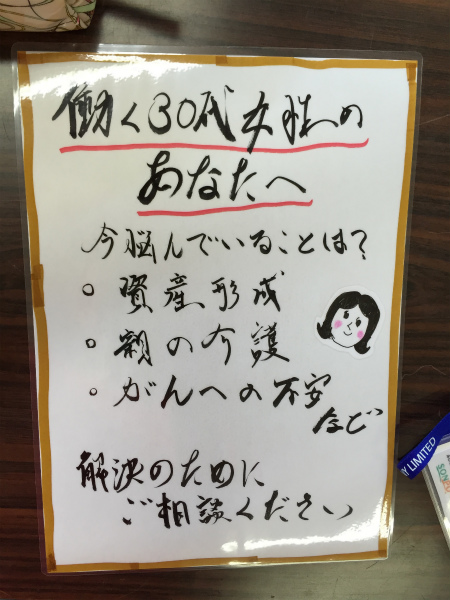 働く30代女性の
あなたへ
今脳んでいることは?
• 資産形成
• 親の介護
• がんへの不安
など
解決のために
ご相談ください
Y LIMITED